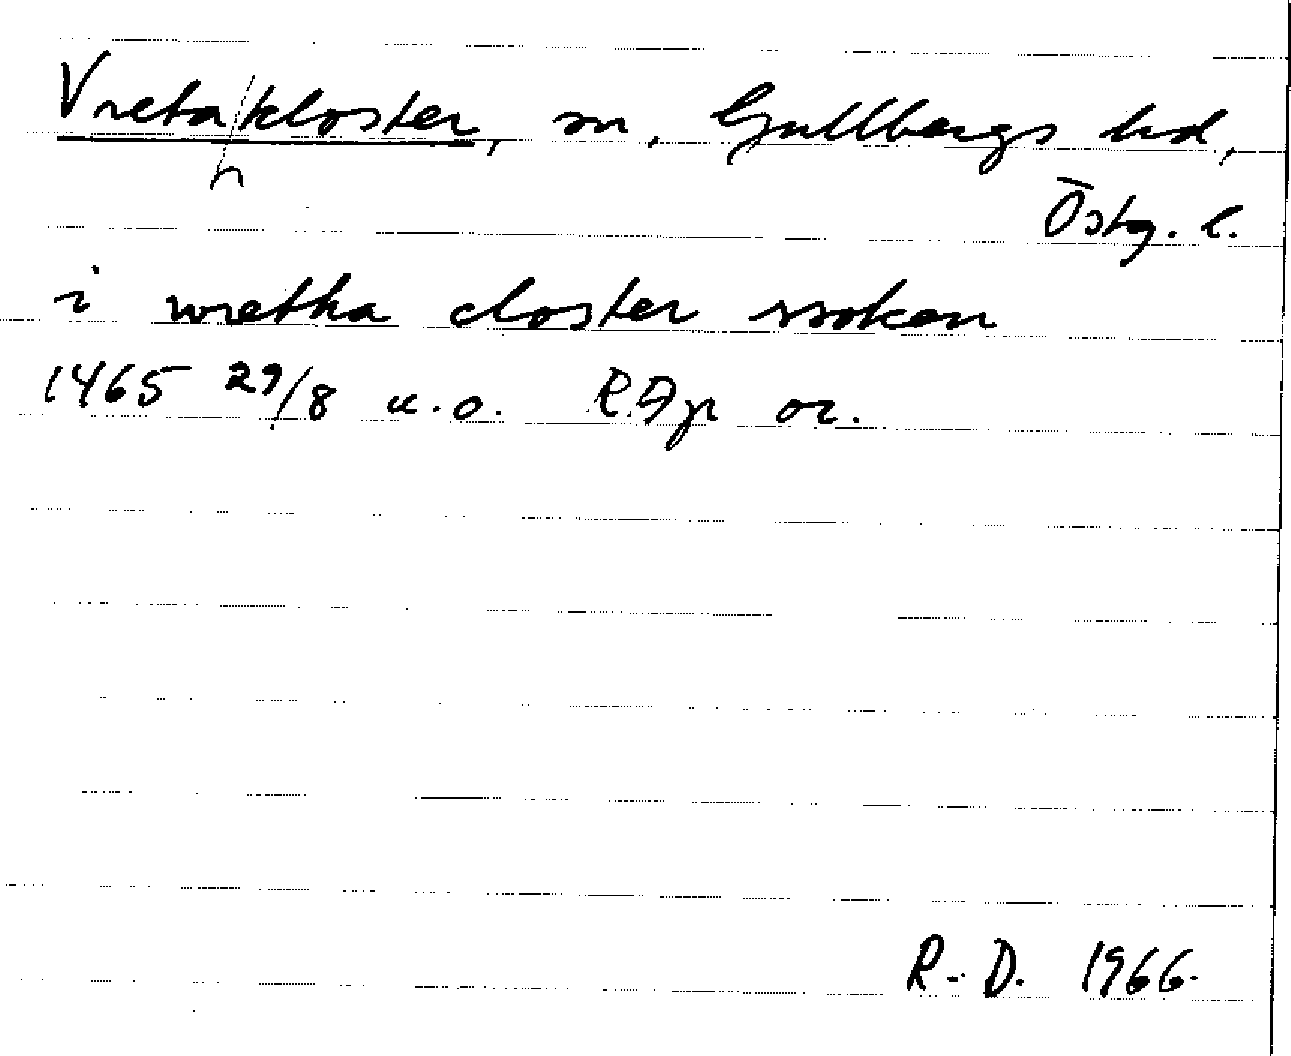 Vreta kloster, sn, Gullbergs hd,
Östg. l.
i wretha closter ssoken
1465 29/8 u.o. RApr or.
R.-D. 1966.